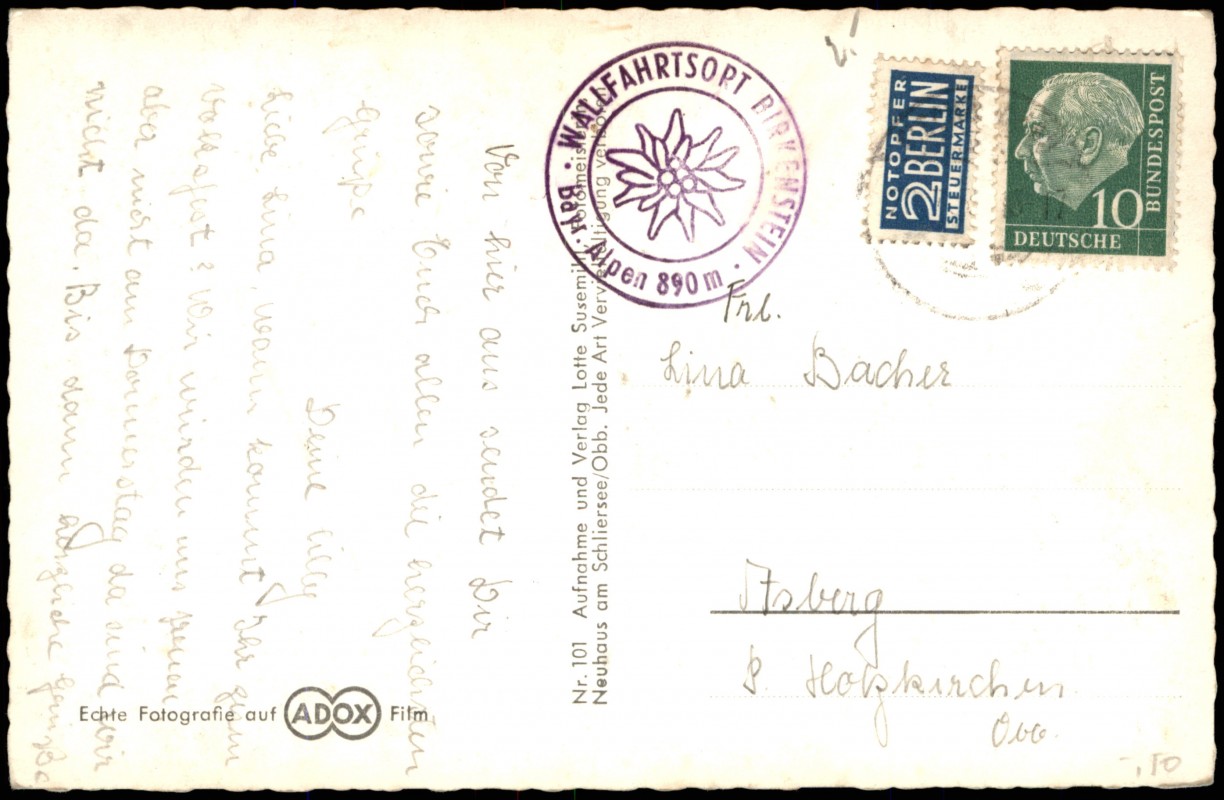 Von hier aus sendet Dir
sowie Euch allen die herzlichsten
Grüße
Deine
Liebe Lina, wann kommt Ihr zum
Volksfest? Wir würden uns freuen
aber nicht am Donnerstag da sind wir
nicht da. Bis dann herzliche Grüße
Echte Fotografie auf ADOX Film
Nr. 101 Aufnahme und Verlag Lotte Susemihl, Fotomeisterin
Neuhaus am Schliersee/Obb. Jede Art Vervielfältigung verboten
· WALLFAHRTSORT BIRKENSTEIN ·
Bayr. Alpen 890 m
NOTOPFER
2 BERLIN
STEUERMARKE
10
DEUTSCHE
BUNDESPOST
Frl.
Lina Bacher
P. Holzkirchen
Obb.
-,10